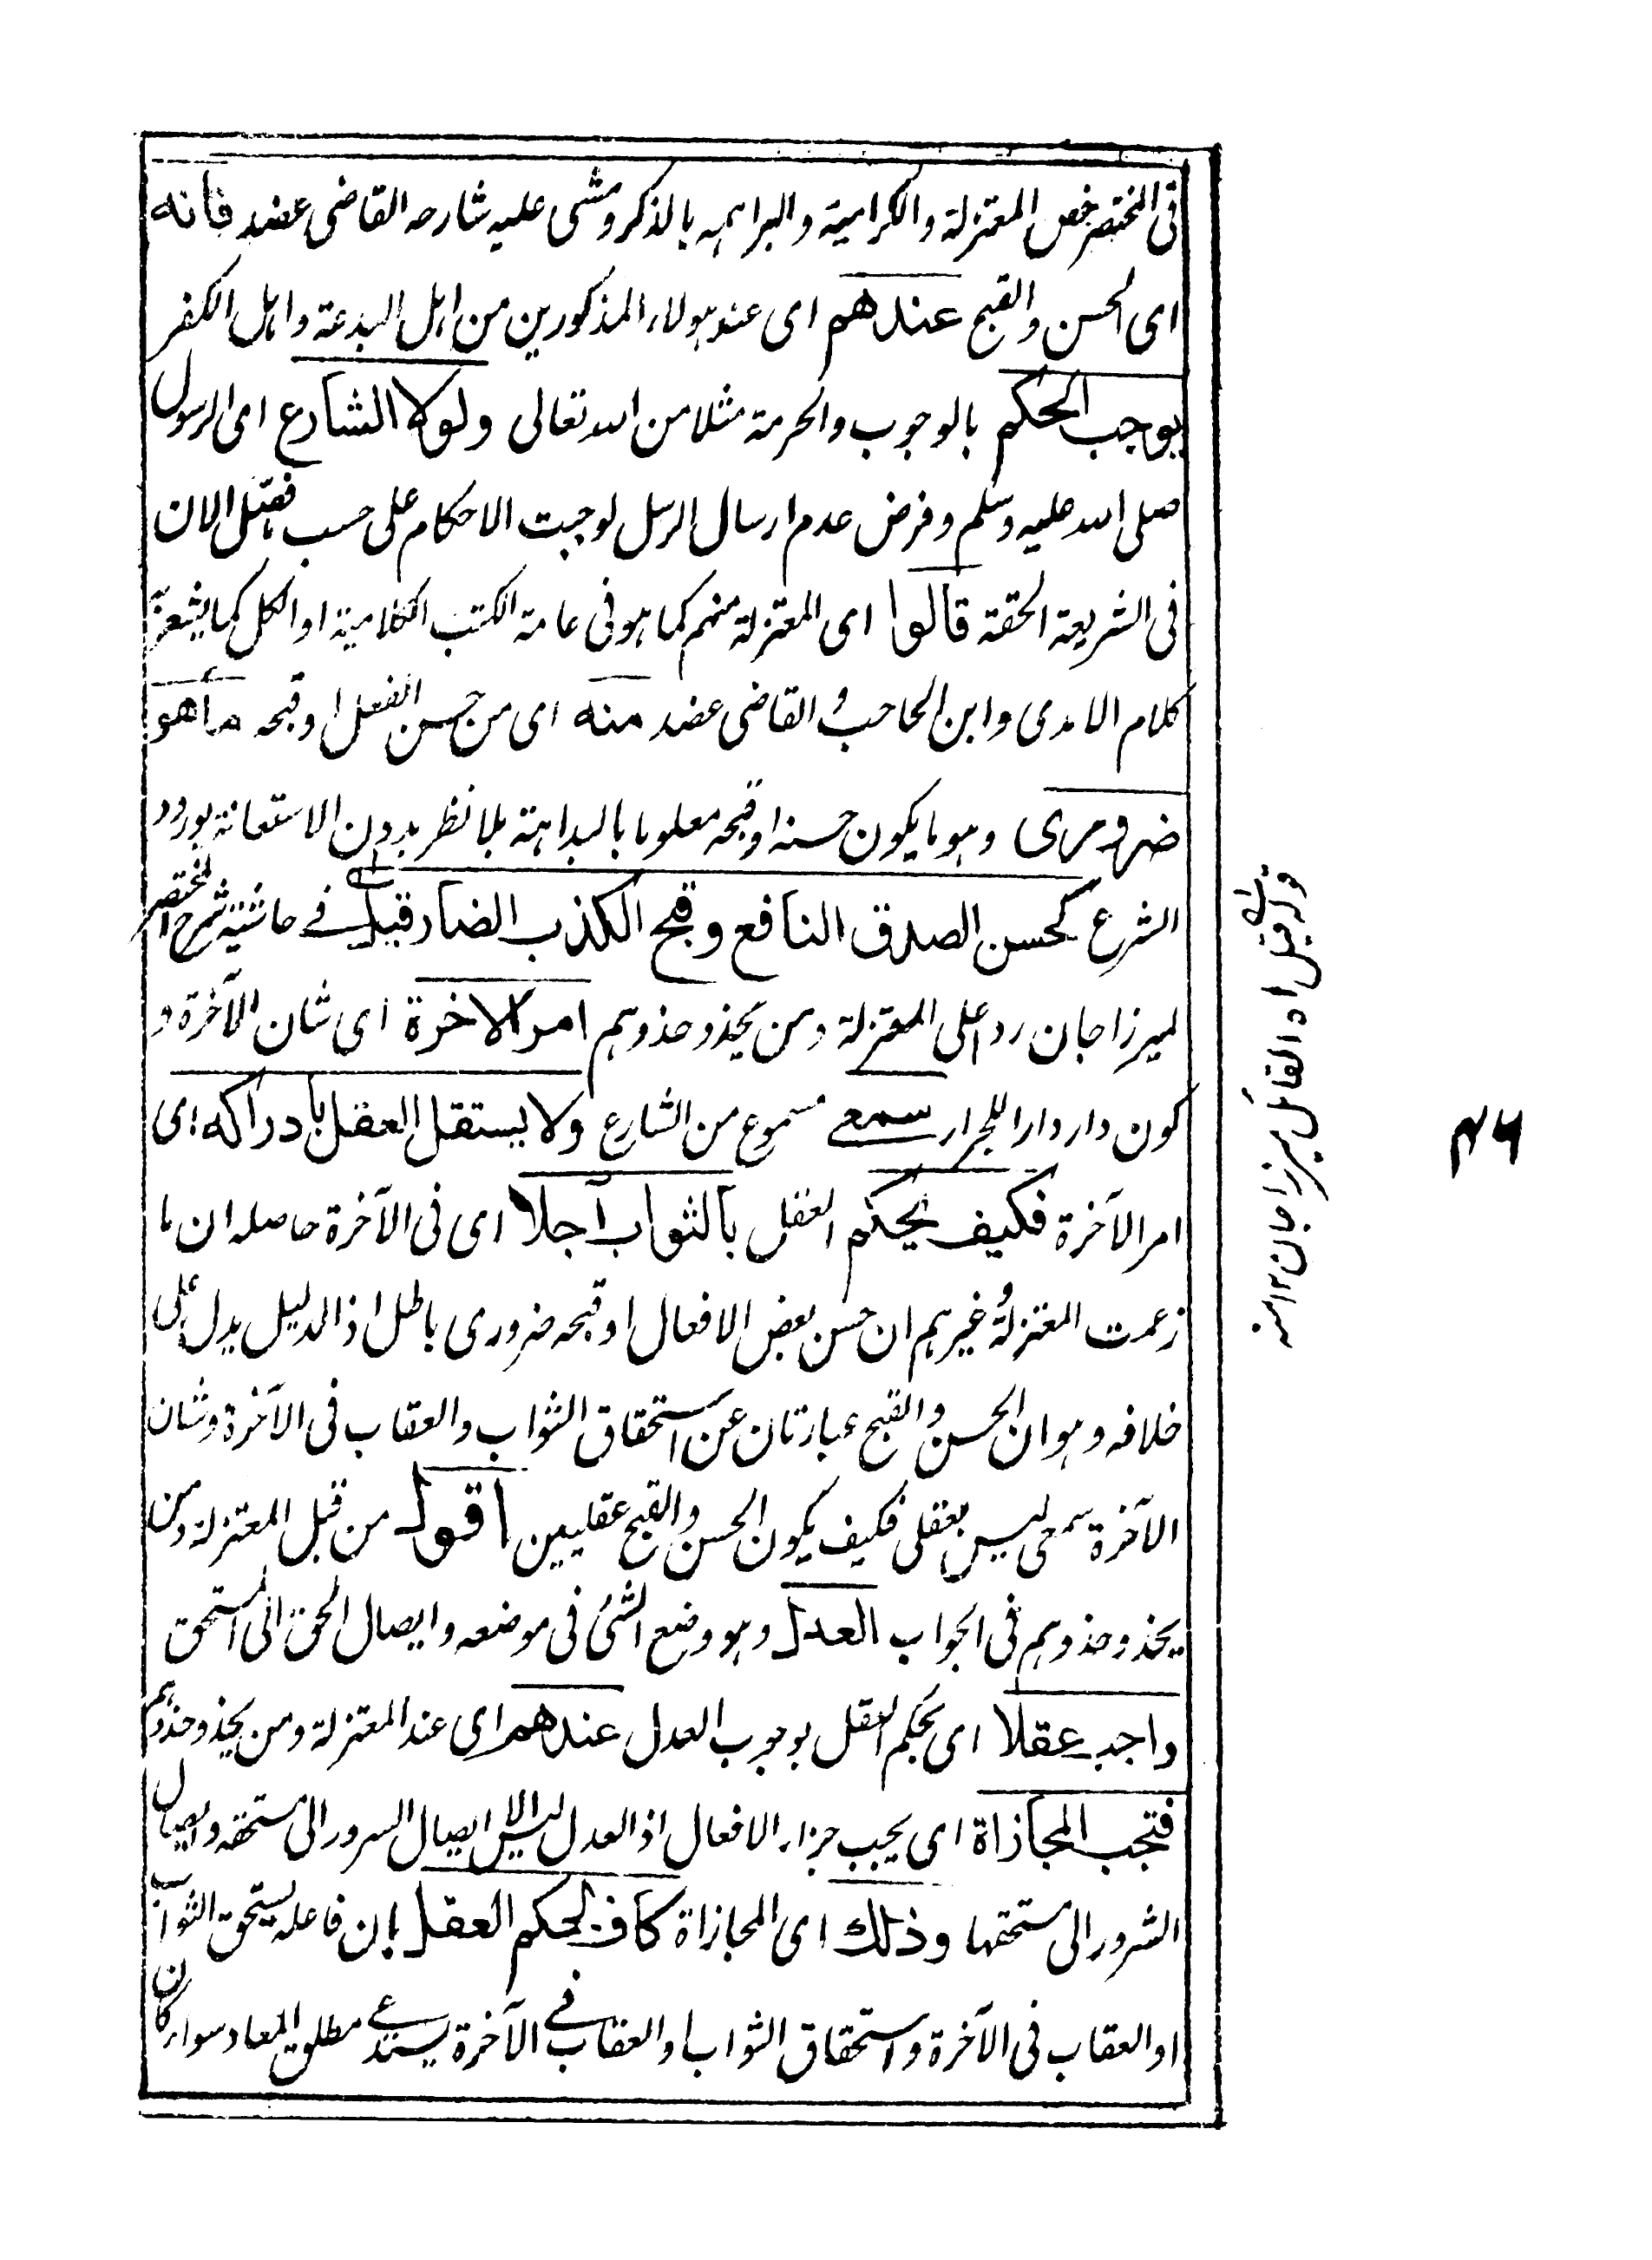 فى المختصر خص المعتزلة والكرامية والبراهمه بالذكر ومشى عليه شارحه القاضى عضد فانه
اى الحسن والقبح عندهم اى عند هولاء المذكورين من اهل البدعة واهل الكفر
يوجب الحكم بالوجوب والحرمة مثلا من الله تعالى ولولا الشارع اى الرسول
صلى الله عليه وسلم وفرض عدم ارسال الرسل لوجبت الاحكام على حسب الان
فى الشريعة الحقة قالوا اى المعتزلة منهم كما هو فى عامة الكتب الكلامية او الكل كما يشعر به
كلام الامدى وابن الحاجب والقاضى عضد منه اى من حسن الفعل او قبحه ما هو
ضرورى وهو ما يكون حسنه او قبحه معلوما بالبداهة بلا نظر بدون الاستعانة بورود
الشرع كحسن الصدق النافع وقبح الكذب الضار قيل فى حاشية شرح المختصر
لميرزا جان ردا على المعتزلة ومن يحذو حذوهم امر الاخرة اى شان الآخرة و
كون دار دارا للجزاء سمعى مسموع من الشارع ولا يستقل العقل بادراكه اى
امر الآخرة فكيف يحكم العقل بالثواب آجلا اى فى الآخرة حاصله ان ما
زعمت المعتزلة وغيرهم ان حسن بعض الافعال او قبحه ضرورى باطل اذ الدليل يدل على
خلافه وهو ان الحسن والقبح عبارتان عن استحقاق الثواب والعقاب فى الآخرة وشان
الآخرة سمعى ليس بعقلى فكيف يكون الحسن والقبح عقليين اقول من قبل المعتزلة ومن
يحذو حذوهم فى الجواب العدل وهو وضع الشئ فى موضعه وايصال الحق الى المستحق
واجب عقلا اى يحكم العقل بوجوب العدل عندهم اى عند المعتزلة ومن يحذو حذوهم
فتجب المجازاة اى يجب جزاء الافعال اذ العدل ليس الا ايصال السرور الى مستحقه وايصال
الشرور الى مستحقها وذلك اى المجازاة كاف لحكم العقل بان فاعله يستحق الثواب
او العقاب فى الآخرة واستحقاق الثواب او العقاب فى الآخرة يستدعى مطلق المعاد سواء كان
قوله قيل اه القائل ميرزا جان ١٢ منه
٤٦